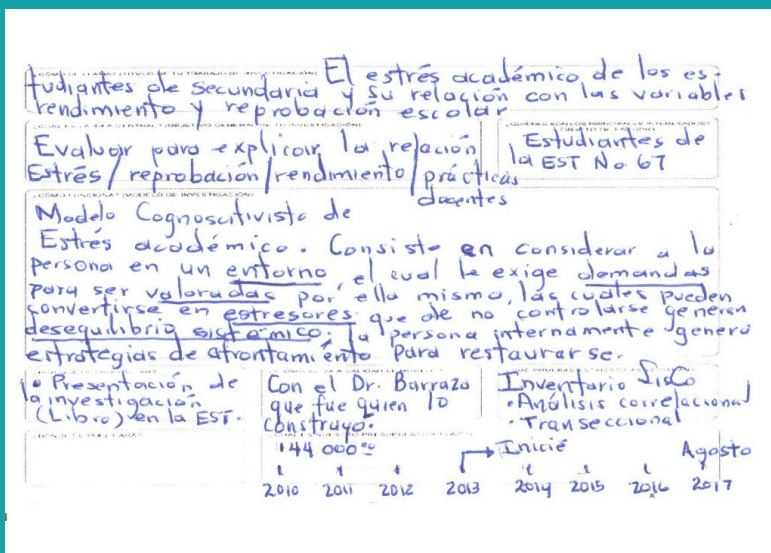 ¿CÓMO SE LLAMA? (TÍTULO DE TU TRABAJO DE INVESTIGACIÓN) El estrés académico de los es-
tudiantes de secundaria y su relación con las variables
rendimiento y reprobación escolar
Evaluar para explicar la relación
Estrés/reprobación/rendimiento/prácticas
docentes
Estudiantes de
la EST No. 67
¿CÓMO FUNCIONA? (MODELO DE INVESTIGACIÓN)
Modelo Cognoscitivista de
Estrés académico. Consiste en considerar a la
persona en un entorno, el cual le exige demandas
para ser valoradas por ella misma, las cuales pueden
convertirse en estresores que de no controlarse generan
desequilibrio sistémico; la persona internamente genera
estrategias de afrontamiento para restaurarse.
• Presentación de
la investigación
(Libro) en la EST.
Con el Dr. Barraza
que fue quien lo
construyo.
Inventario SISCO
• Análisis correlacional
• Transeccional
144 000 00
Inicié
Agosto
2010 2011 2012 2013 2014 2015 2016 2017